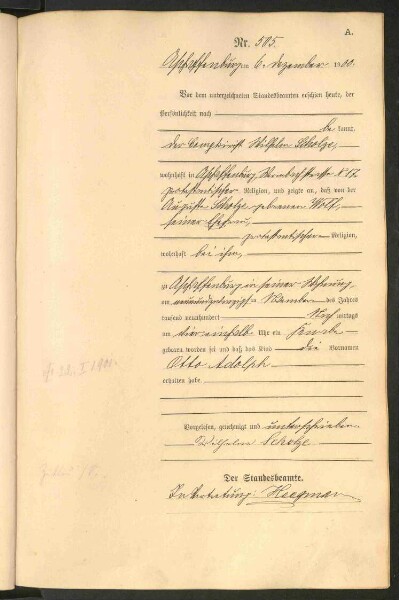 A.
Nr. 505.
Aschaffenburg am 6. Dezember 1900.
Vor dem unterzeichneten Standesbeamten erschien heute, der
Persönlichkeit nach
be kannt,
der Comptorist Wilhelm Scholze,
wohnhaft in Aschaffenburg,
protestantischer Religion, und zeigte an, daß von der
Auguste Scholze, geborenen Wolf,
seiner Ehefrau,
protestantischer Religion,
wohnhaft bei ihm,
zu Aschaffenburg in seiner Wohnung,
am neunundzwanzigsten November des Jahres
tausend neunhundert Nach mittags
um vier einhalb Uhr ein Knabe
geboren worden sei und daß das Kind die Vornamen
Otto Adolph
erhalten habe
Vorgelesen, genehmigt und unterschrieben
Wilhelm Scholze
Der Standesbeamte.
In Vertretung: